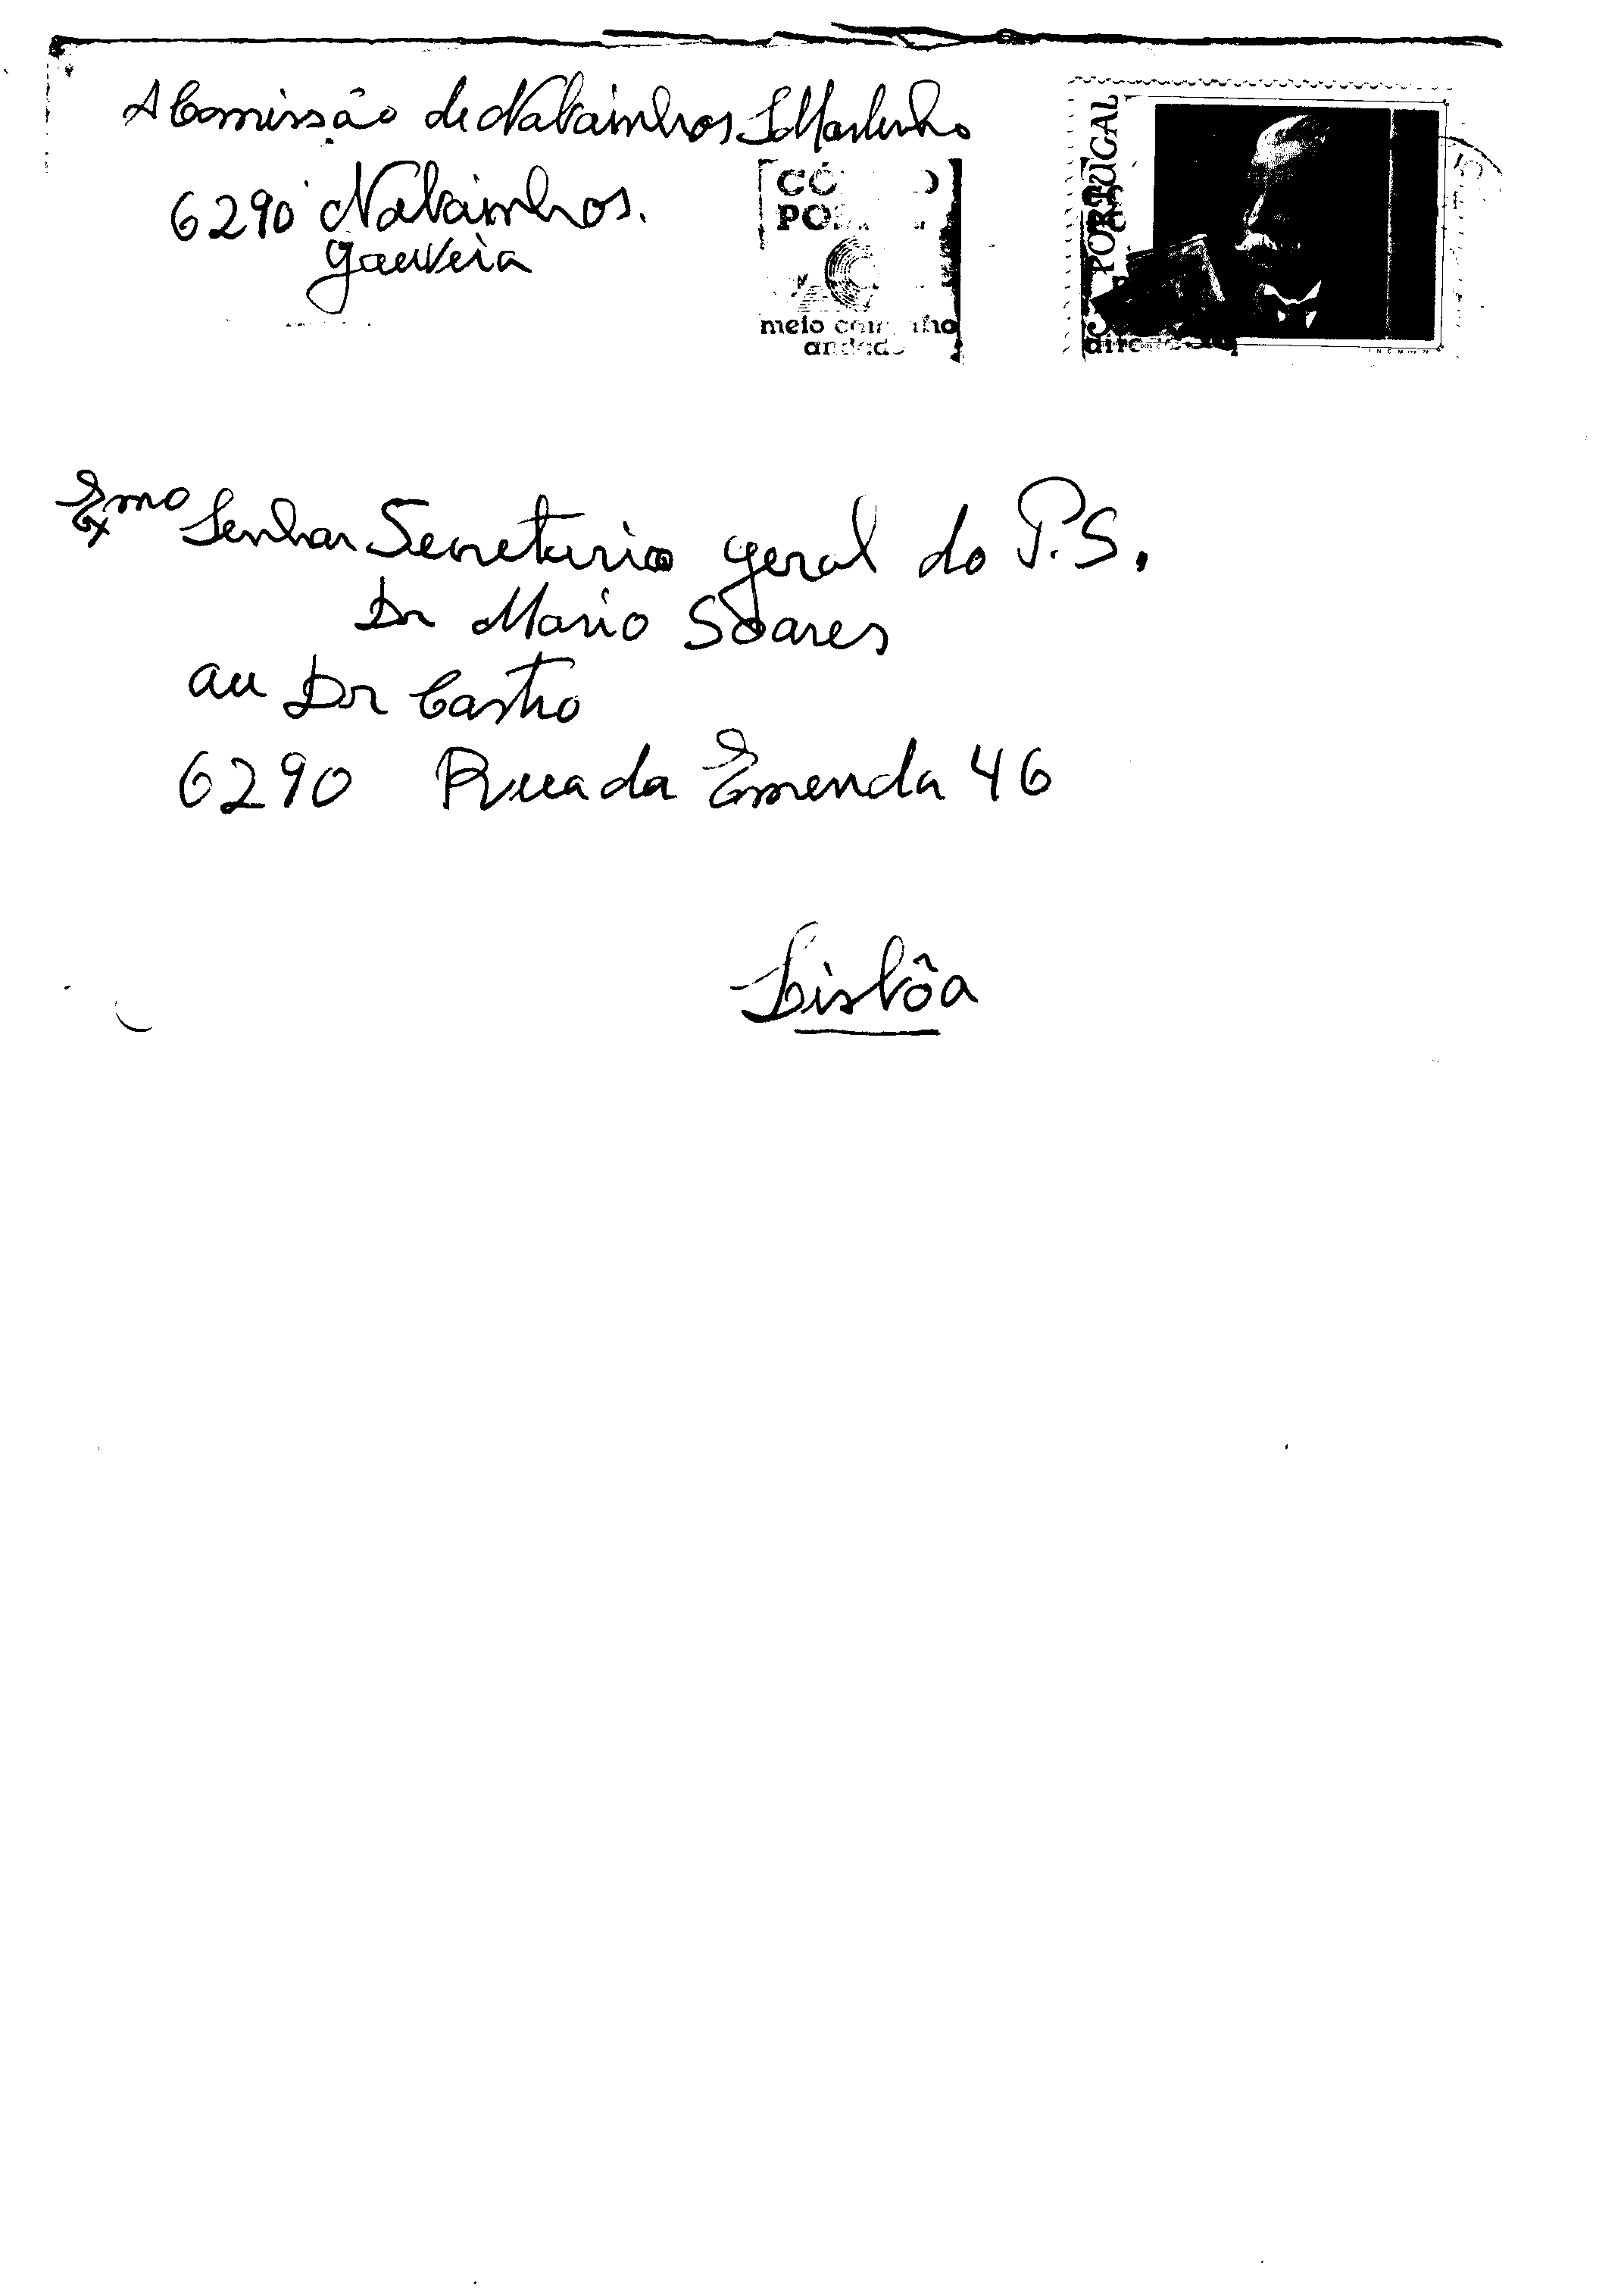 A Comissão de Nabainhos
6290 Nabainhos.
Gouveia
meio caminho
andado
PORTUGAL
Exmo Senhor Secretario geral do P.S.
Dr Mario Soares
au Dr Castro
6290 Rua da Emenda 46
Lisbôa